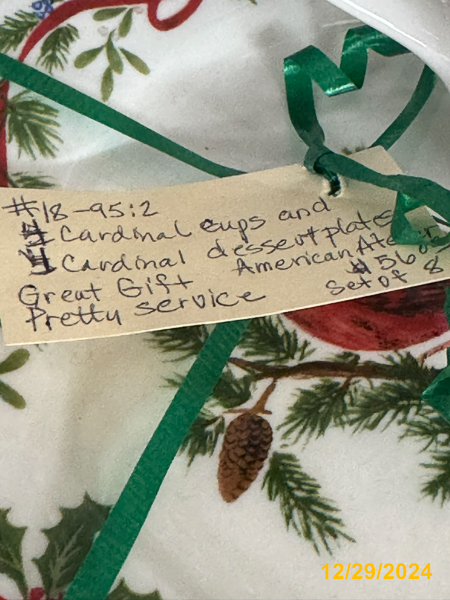 #18-95:2
4 Cardinal cups and
4 Cardinal dessert plates
Great Gift American
Pretty service $56
Set of 8
12/29/2024